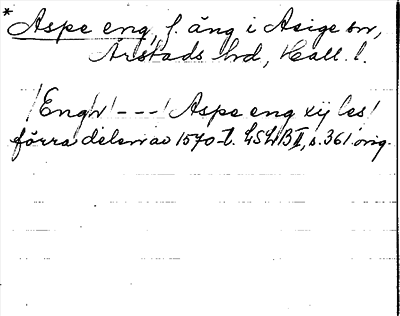 * Aspe eng, f. äng i Asige sn,
Årstads hd, Hall. l.
/Engr/ --- / Aspe eng xij les/
förra delen av 1570-t. LSHB II, s. 361 orig.